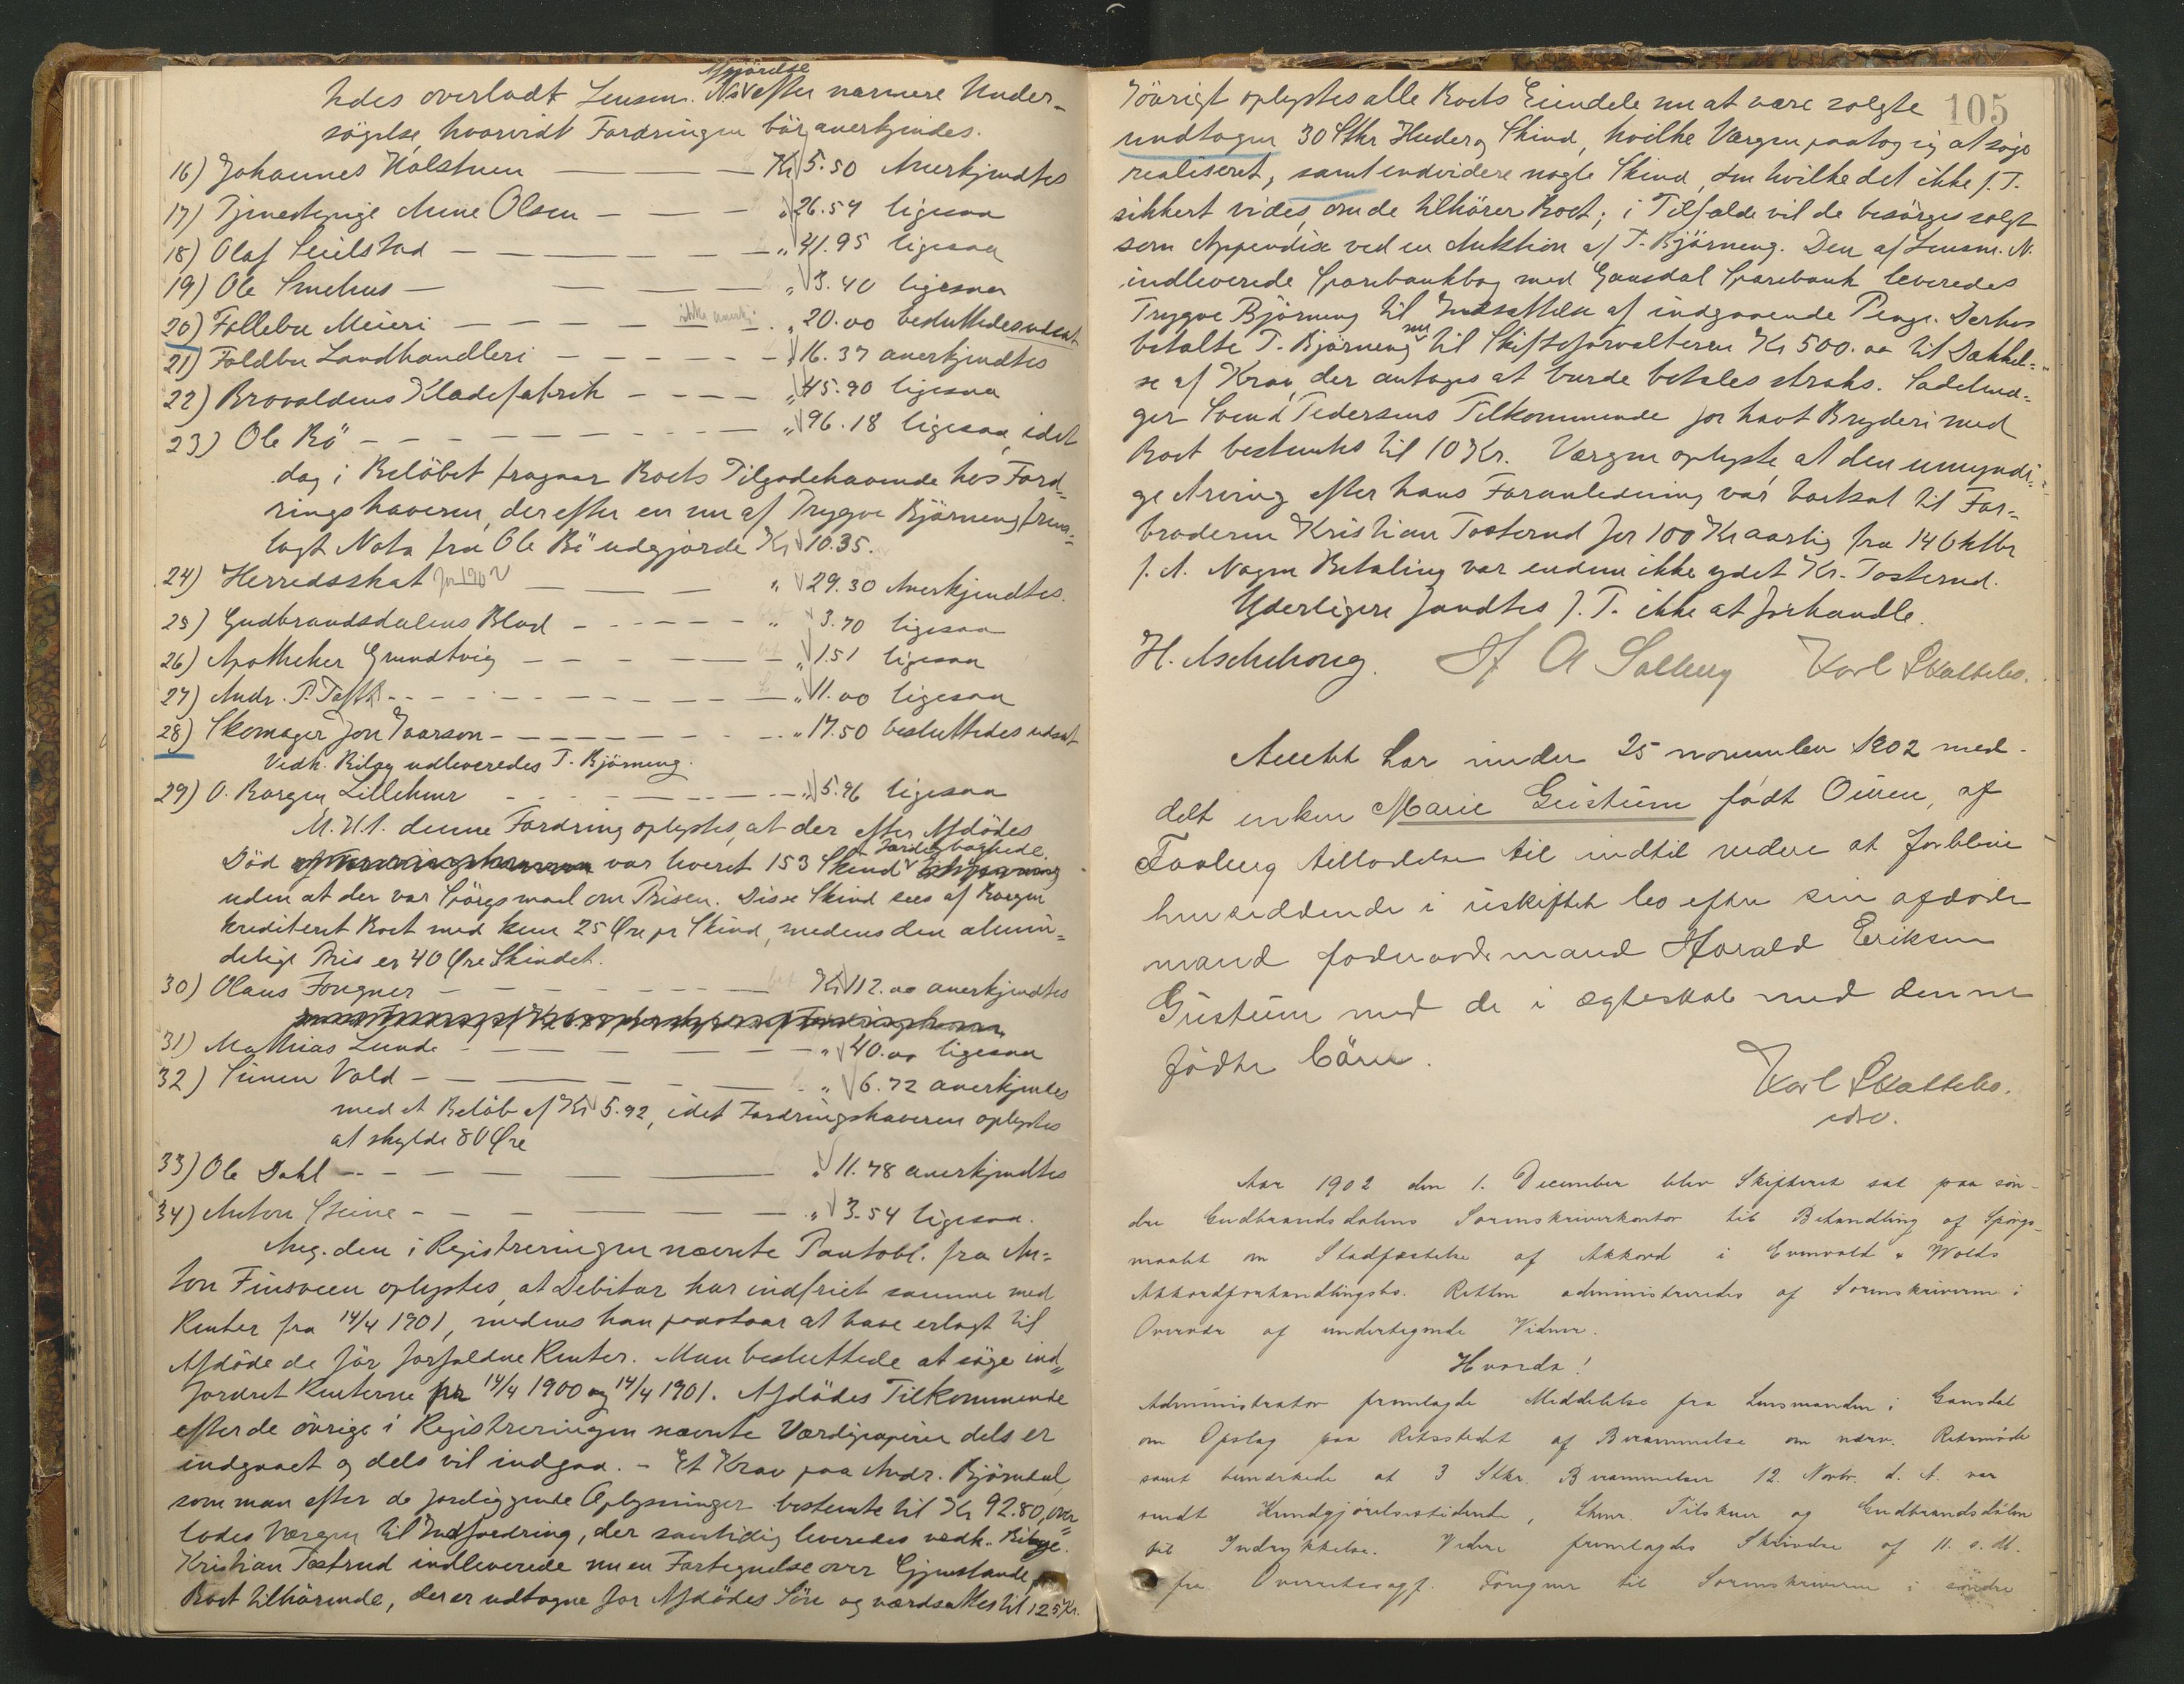 Afgjörelse
tedes overladt Lensm. N.s efter nærmere Under-
sögelse, hvorvidt Fordringen bör anerkjendes.
16) Johannes Kalstuen — Kr 5.50 Anerkjendtes
17) Tjenestepige Anne Olsen — " 26.54 ligesaa
18) Olaf Seielstad — " 41.95 ligesaa
19) Ole Smehus — " 3.40 ligesaa
20) Follebu Meieri — " 20.00 besluttedes udsat
21) Foldbu Landhandleri — " 16.37 anerkjendtes
22) Brovoldens Klædefabrik — " 45.90 ligesaa
23) Ole Bö — " 96.18 ligesaa, idet
dog i Belöbet fragaar Boets Tilgodehavende hos Ford-
ringshaveren, der efter en nu af Trygve Björneng frem-
lagt Nota fra Ole Bö udgjorde Kr 10.35.
24) Herredsskat for 190 — " 29.30 Anerkjendtes.
25) Gudbrandsdalens Blad — " 3.70 ligesaa
26) Apotheker Grundtvig — " 1.51 ligesaa
27) Andr. P. — " 11.00 ligesaa
28) Skomager Jon Ivarson — " 17.50 besluttedes udsat
Vedk. Bilag udleveredes T. Björneng.
29) O. Bargen Lillehmr — " 5.96 ligesaa
M. H. t. denne Fordring oplystes, at der efter Afdödes
Död var leveret 153 Skind
uden at der var Spörgsmaal om Prisen. Disse Skind sees af Bargen
krediteret Boet med kun 25 Øre pr Skind, medens den almin-
delige Pris er 40 Øre Skindet.
30) Olaus Fougner — Kr 12.00 anerkjendtes
31) Mathias Lunde — " 40.00 ligesaa
32) Simen Vold — " 6.72 anerkjendtes
med et Belöb af Kr 5.92, idet Fordringshaveren oplystes
at skylde 80 Øre
33) Ole Dahl — " 11.78 anerkjendtes
34) Anton Steine — " 3.54 ligesaa.
Ang. den i Registreringen nævnte Pantobl. fra An-
ton Finsveen oplystes, at Debitor har indfriet samme med
Renter fra 14/4 1901, medens han paastaar at have erlagt til
Afdöde de för forfaldne Renter. Man besluttede at söge ind-
fordret Renterne pr 14/4 1900 og 14/4 1901. Afdödes Tilkommende
efter de övrige i Registreringen nævnte Værdipapirer dels er
indgaaet og dels vil indgaa. - Et Krav paa Andr. Björndal,
som man efter de foreliggende Oplysninger bestemte til Kr 92.80, over-
lodes Værgen til Indfordring, der samtidig leveredes vedk. Bilage.
Kristian Tostrud indleverede nu en Fortegnelse over Gjenstande,
Boet tilhörende, der er udtagne for Afdödes Sön og værdsattes til 125 Kr.
105
Iövrigt oplystes alle Boets Eiendele nu at være solgte
undtagen 30 Stkr Huder og Skind, hvilke Værgen paatog sig at söge
realiseret, samt endvidere nogle Skind, om hvilke det ikke f. T.
sikkert vides, om de tilhörer Boet; i Tilfælde vil de besörges solgt
som Appendix ved en Auktion af T. Björneng. Den af Lensm. N.
indleverede Sparebankbog med Gausdal Sparebank leveredes
Trygve Björneng til Indsættelse af indgaaende Penge. Derhos
betalte T. Björneng nu til Skifteforvalteren Kr 500.00 til Dækkel-
se af Krav, der antages at burde betales straks. Sadelmа-
ger Svend Pedersens Tilkommende for havt Bryderi med
Boet bestemtes til 10 Kr. Værgen oplyste at den umyndi-
ge Arving efter hans Foranledning var bortsat til Far-
broderen Kristian Tosterud for 100 Kr aarlig fra 14 Oktbr
f. A. Nogen Betaling var endnu ikke ydet Kr. Tosterud.
Yderligere fandtes f. T. ikke at forhandle.
H. Aschehoug. H A Solberg Karl Skattebo.
Amtet har under 25 november 1902 med-
delt enken Marie Gustum födt Ouren, af
Faaberg tilladelse til indtil videre at forblive
hensiddende i uskiftet bo efter sin afdöde
mand gardmand Harald Eriksen
Gustum med de i ægteskab med denne
födte börn.
Karl Skattebo.
cst.
Aar 1902 den 1. December blev Skifteret sat paa sön-
dre Gudbrandsdalens Sorenskriverkontor til Behandling af Spörgs-
maalet om Stadfæstelse af Akkord i Evenvold & Wolds
Akkordforhandlingsbo. Retten administreredes af Sorenskriveren i
Overvær af undertegnede Vidner.
Hvorda!
Administrator fremlagde Meddelelse fra Lensmanden i Gausdal
om Opslag paa Retsstedet af Berammelse om nærv. Retsmöde
samt bemærkede at 3 Stkr. Berammelser 12. Novbr. d. A. var
sendt Kundgjörelsestidende, Lhmr. Tilskuer og Gudbrandsdölen
til Indrykkelse. Videre fremlagdes Skrivelse af 11. s. M.
fra Overretssagf. Fougner til Sorenskriveren i söndre